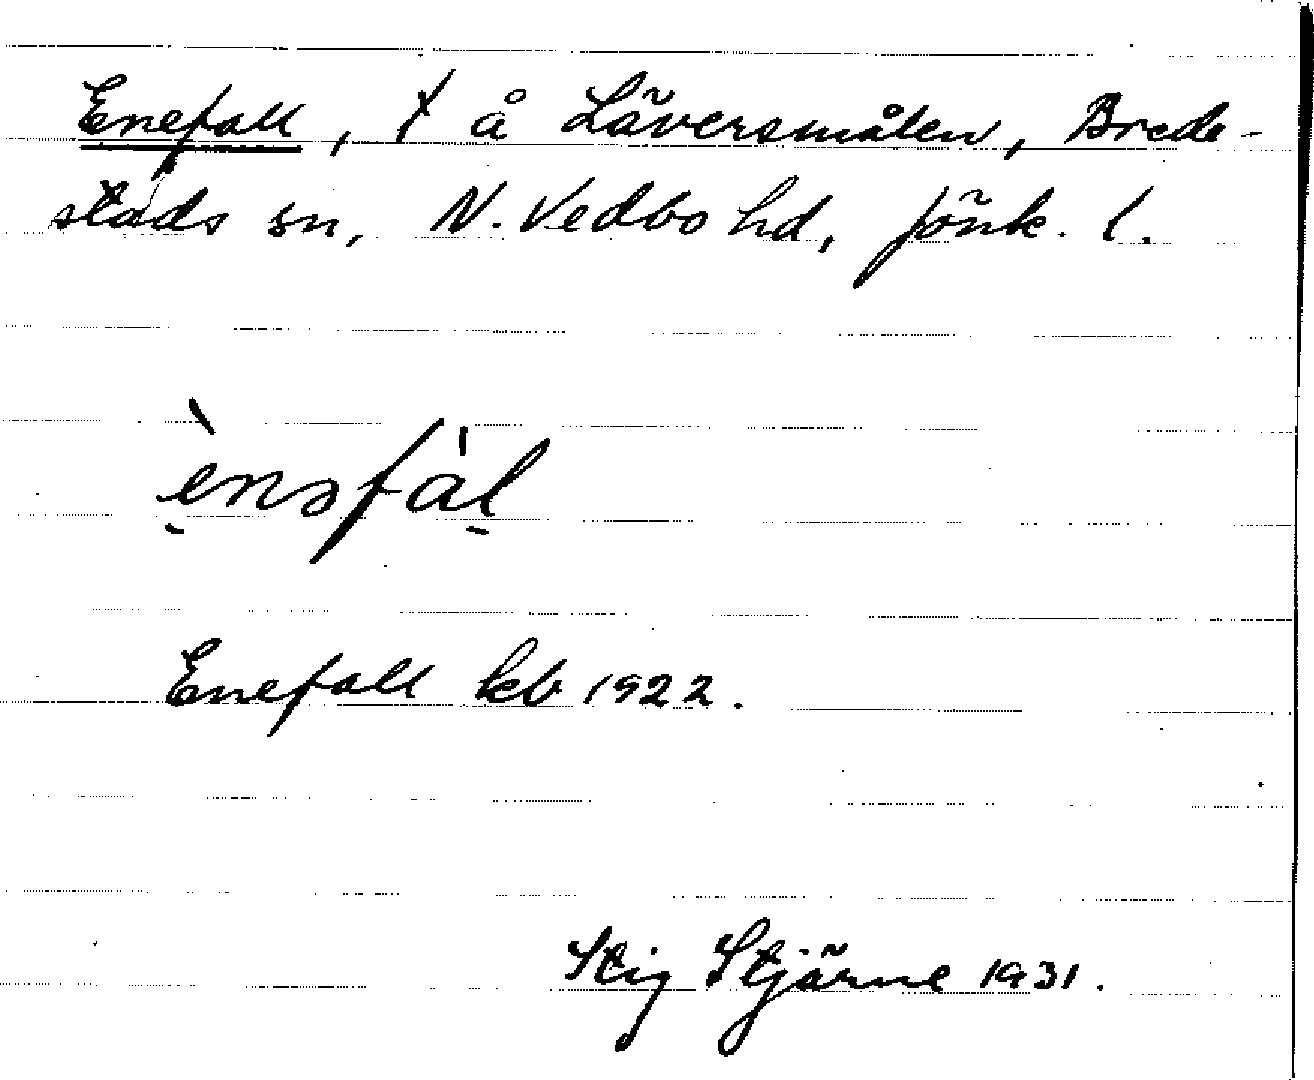 Enefall, t å Läversmålen, Brede-
stads sn, N. Vedbo hd, Jönk. l.
ènəfàl
Enefall kb 1922.
Stig Stjärne 1931.